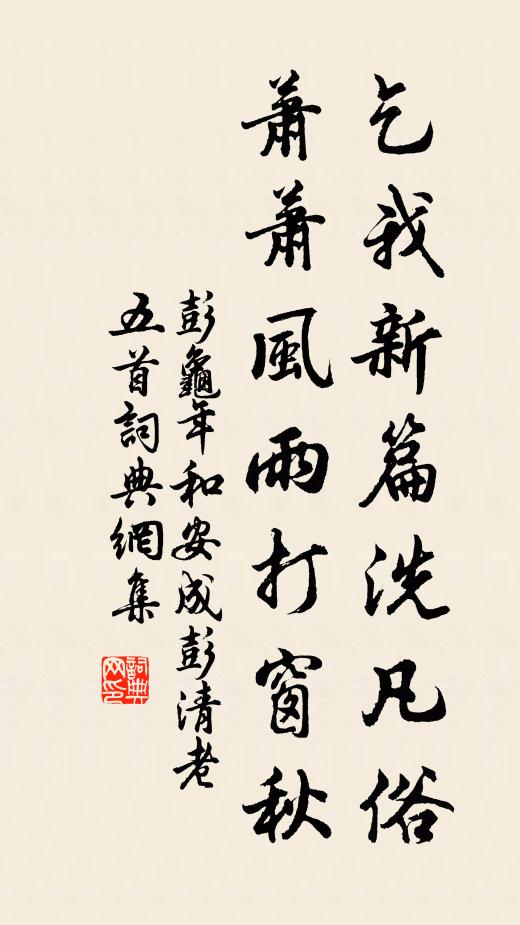 乞我新篇洗凡俗
蕭蕭風雨打窗秋
彭龜年和安成彭清老
五首詞典網集
詞典
网印